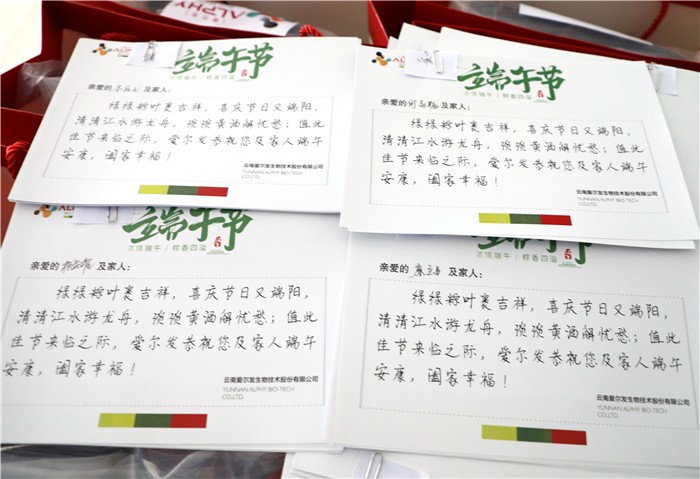 ALPHY
端午节
浓情端午 / 粽香四溢
亲爱的 及家人：
绿绿粽叶裹吉祥，喜庆节日又端阳，
清清江水游龙舟，淡淡黄酒解忧愁；值此
佳节来临之际，爱尔发恭祝您及家人端午
安康，阖家幸福！
云南爱尔发生物技术股份有限公司
YUNNAN ALPHY BIO-TECH
CO.,LTD.
端午节
浓情端午 / 粽香四溢
亲爱的 及家人：
绿绿粽叶裹吉祥，喜庆节日又端阳，
清清江水游龙舟，淡淡黄酒解忧愁；值此
佳节来临之际，爱尔发恭祝您及家人端午
安康，阖家幸福！
云南爱尔发生物技术股份有限公司
YUNNAN ALPHY BIO-TECH
CO.,LTD.
端午节
浓情端午 / 粽香四溢
亲爱的 及家人：
绿绿粽叶裹吉祥，喜庆节日又端阳，
清清江水游龙舟，淡淡黄酒解忧愁；值此
佳节来临之际，爱尔发恭祝您及家人端午
安康，阖家幸福！
云南爱尔发生物技术股份有限公司
YUNNAN ALPHY BIO-TECH
CO.,LTD.
端午节
浓情端午 / 粽香四溢
亲爱的 及家人：
绿绿粽叶裹吉祥，喜庆节日又端阳，
清清江水游龙舟，淡淡黄酒解忧愁；值此
佳节来临之际，爱尔发恭祝您及家人端午
安康，阖家幸福！
云南爱尔发生物技术股份有限公司
YUNNAN ALPHY BIO-TECH
CO.,LTD.